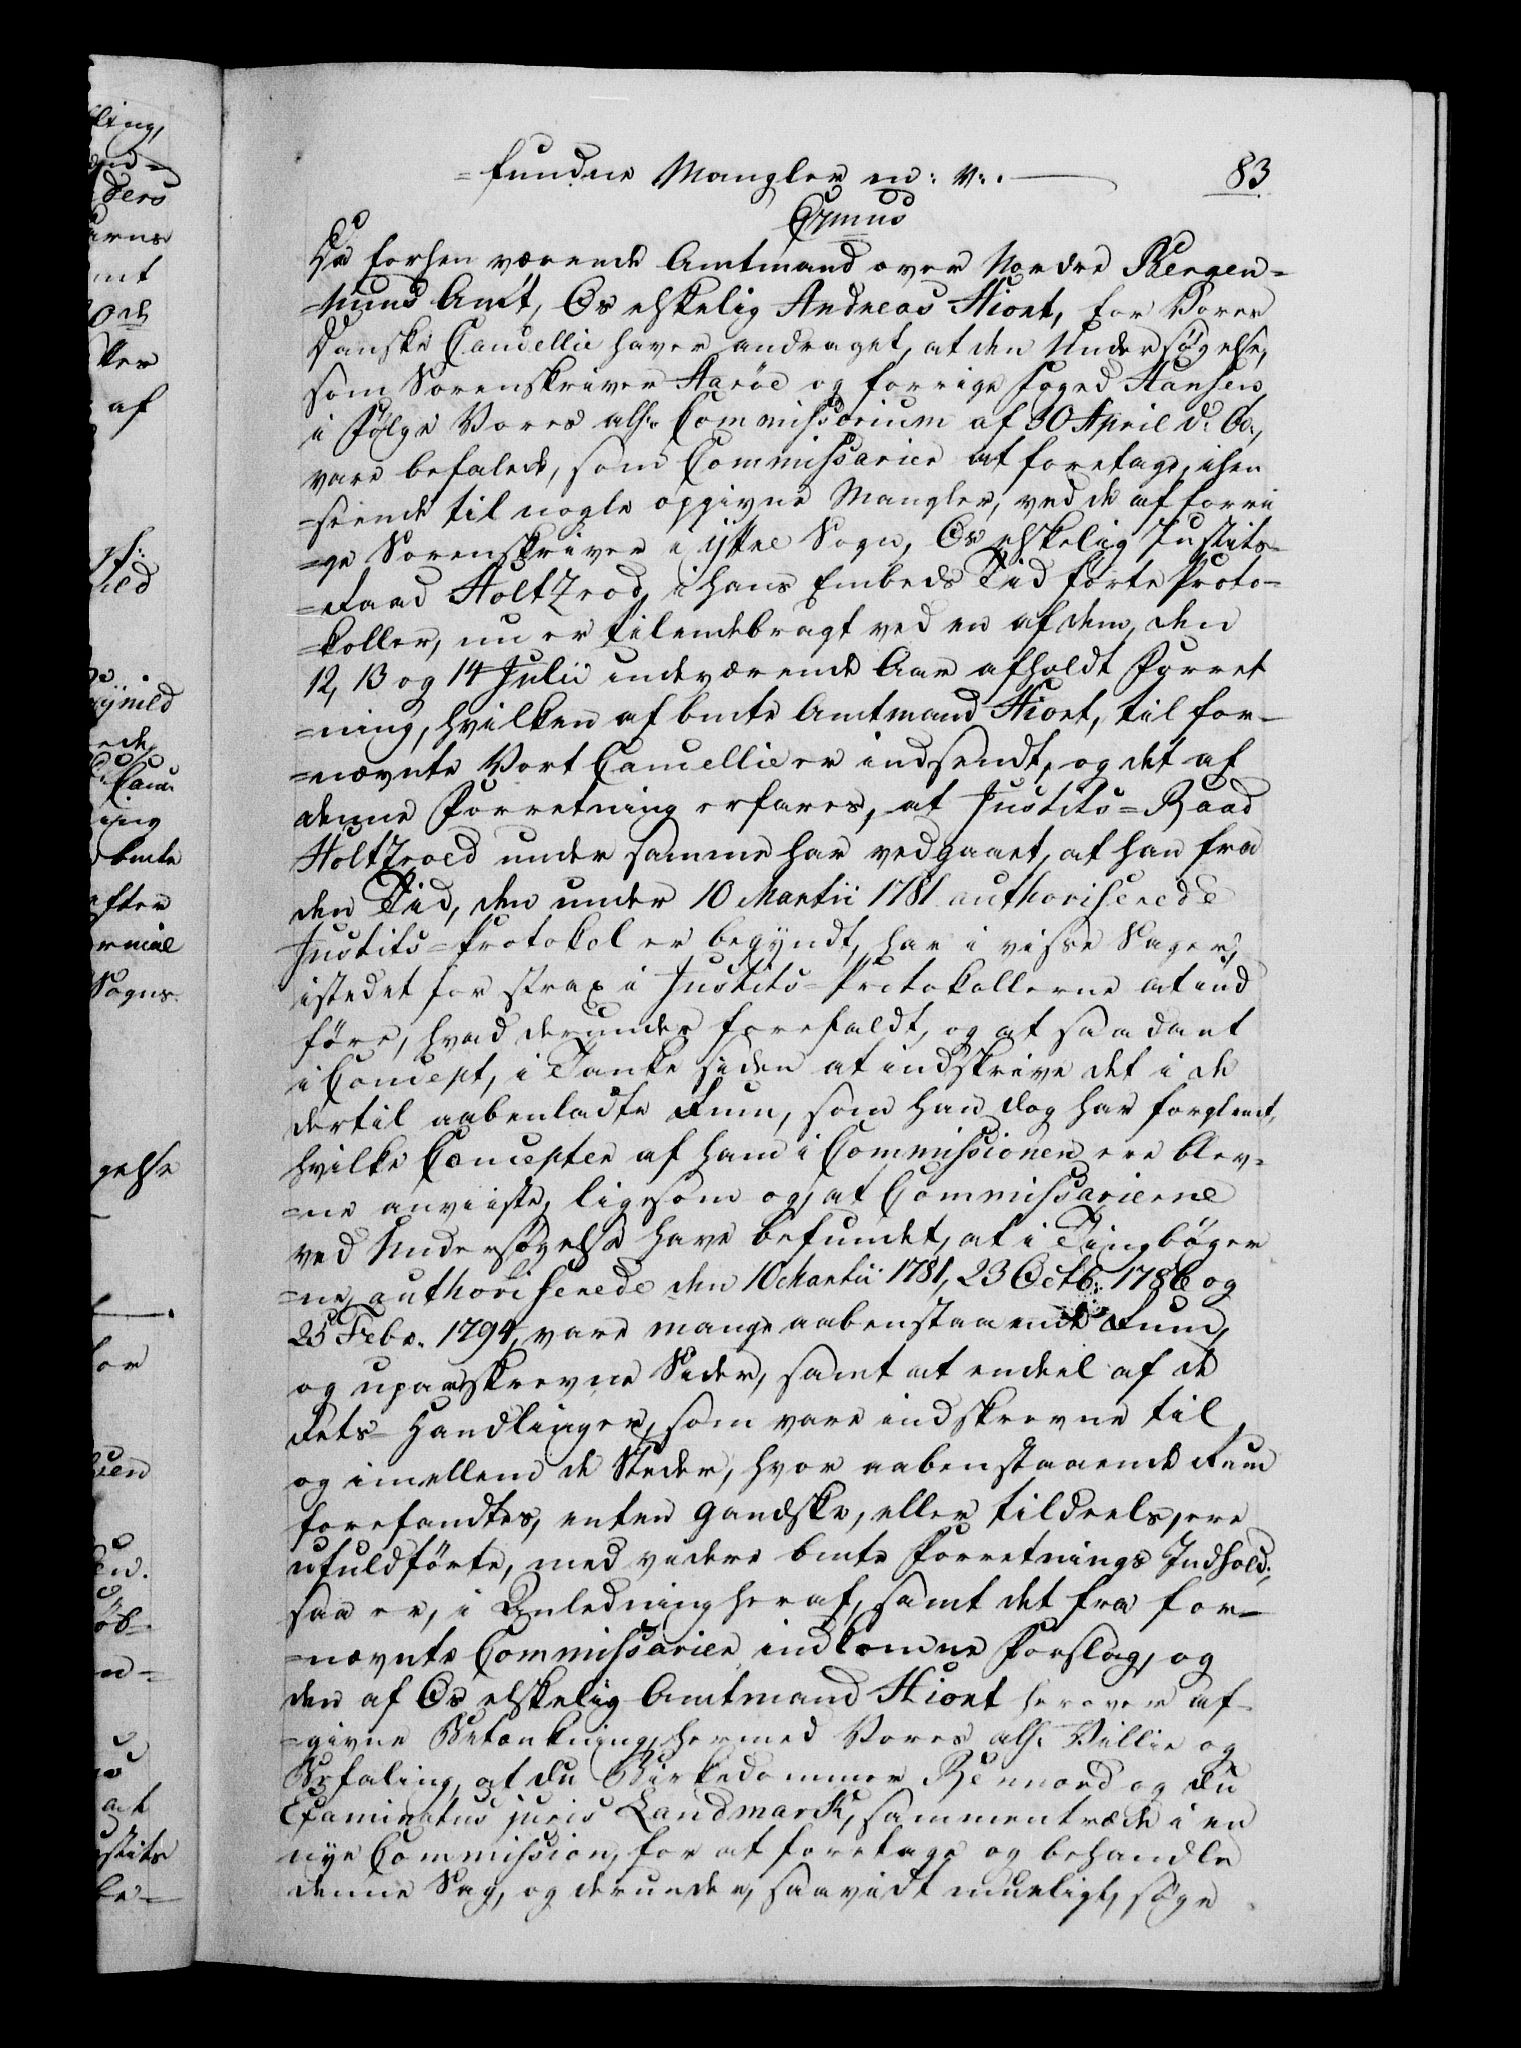 =fundne Mangler m: v:.
83
C7mus
Da forhen værende Amtmand over Nordre Bergen=
=huus Amt, Os elskelig Andreas Hiort, for Vores
Danske Cancellie haver andraget, at den Undersøgelse,
som Sorenskriver Aarøe og forrige Foged Hansen,
i Følge Vores alh. Commissorium af 30 April d: A:,
vare befalede, som Commissarier at foretage, ihen
=seende til nogle opgivne Mangler, ved de af forri
=ge Sorenskriver i yttre Sogn, Os elskelig Justits=
=Raad Holtzrod, i hans Embeds Tid førte Proto=
=koller, nu er tilendebragt ved en af dem, den
12, 13 og 14 Julii indeværende Aar afholdt Forret
=ning, hvilken af bmte Amtmand Hiort, til for=
=nævnte Vort Cancellie er indsendt, og det af
denne Forretning erfares, at Justits=Raad
Holtzroed under samme har vedgaaet, at han fra
den Tid, den under 10 Martii 1781 authoriserede
Justits=Protokol er begyndt, har i visse Sager,
istedet for strax i Justits=Protokollerne at ind
føre, hvad derunder forefaldt, og at saadant
i Concept, i Tanke siden at indskrive det i de
dertil aabenladte Rum, som han dog har forglemt,
hvilke Concepter af ham i Commissionen ere blev=
=ne anviiste, ligesom og, at Commissarierne
ved Undersøgelse have befundet, at i Tingbøger
=ne, authoriserede den 10 Martii 1781, 23 Octb: 1786 og
25 Febr. 1794, vare mange aabenstaaende Rum,
og upaaskrevne Sider, samt at endeel af de
Rets=Handlinger, som vare indskrevne til
og imellem de Steder, hvor aabenstaaende Rum
forefandtes, enten gandske, eller tildeels, ere
ufuldførte, med videre bmte Forretnings Indhold;
saa er, i Anledning heraf, samt det fra for=
=nævnte Commissarier indkomne Forslag, og
den af Os elskelig Amtmand Hiort herover af=
=givne Betænkning, hermed Vores alh. Villie og
Befaling, at du Birkedommer Rennord og du
Examinatus juris Landmark, sammentræde i en
nye Commission, for at foretage og behandle
denne Sag, og derunder, saavidt mueligt, søge